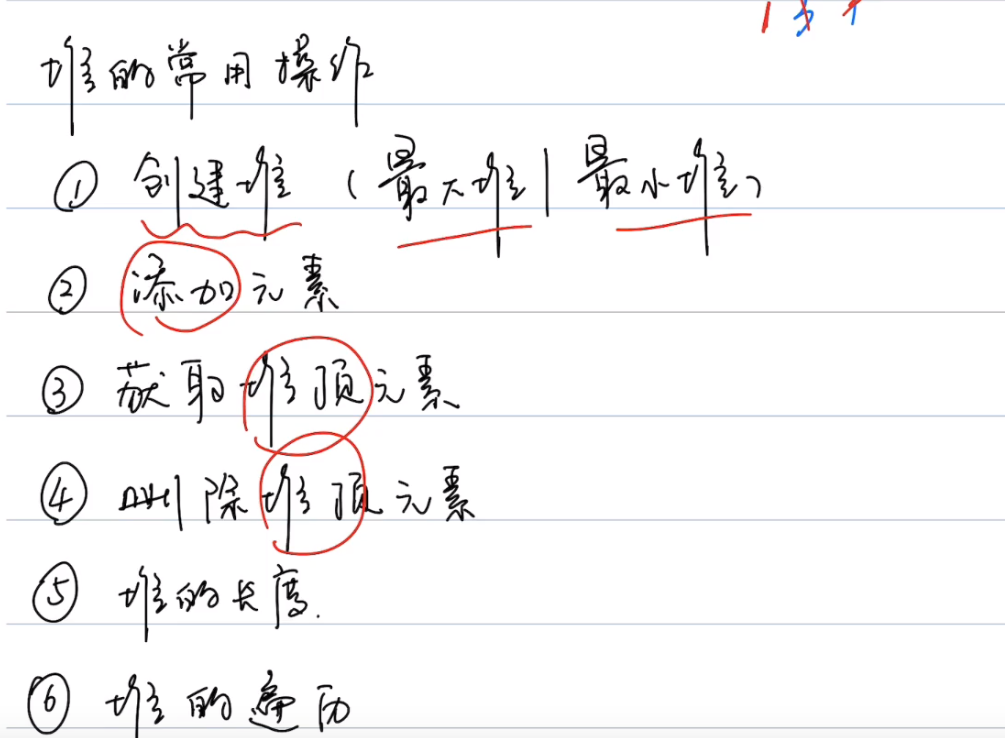 堆的常用操作
① 创建堆 (最大堆|最小堆)
② 添加元素
③ 获取堆顶元素
④ 删除堆顶元素
⑤ 堆的长度.
⑥ 堆的遍历